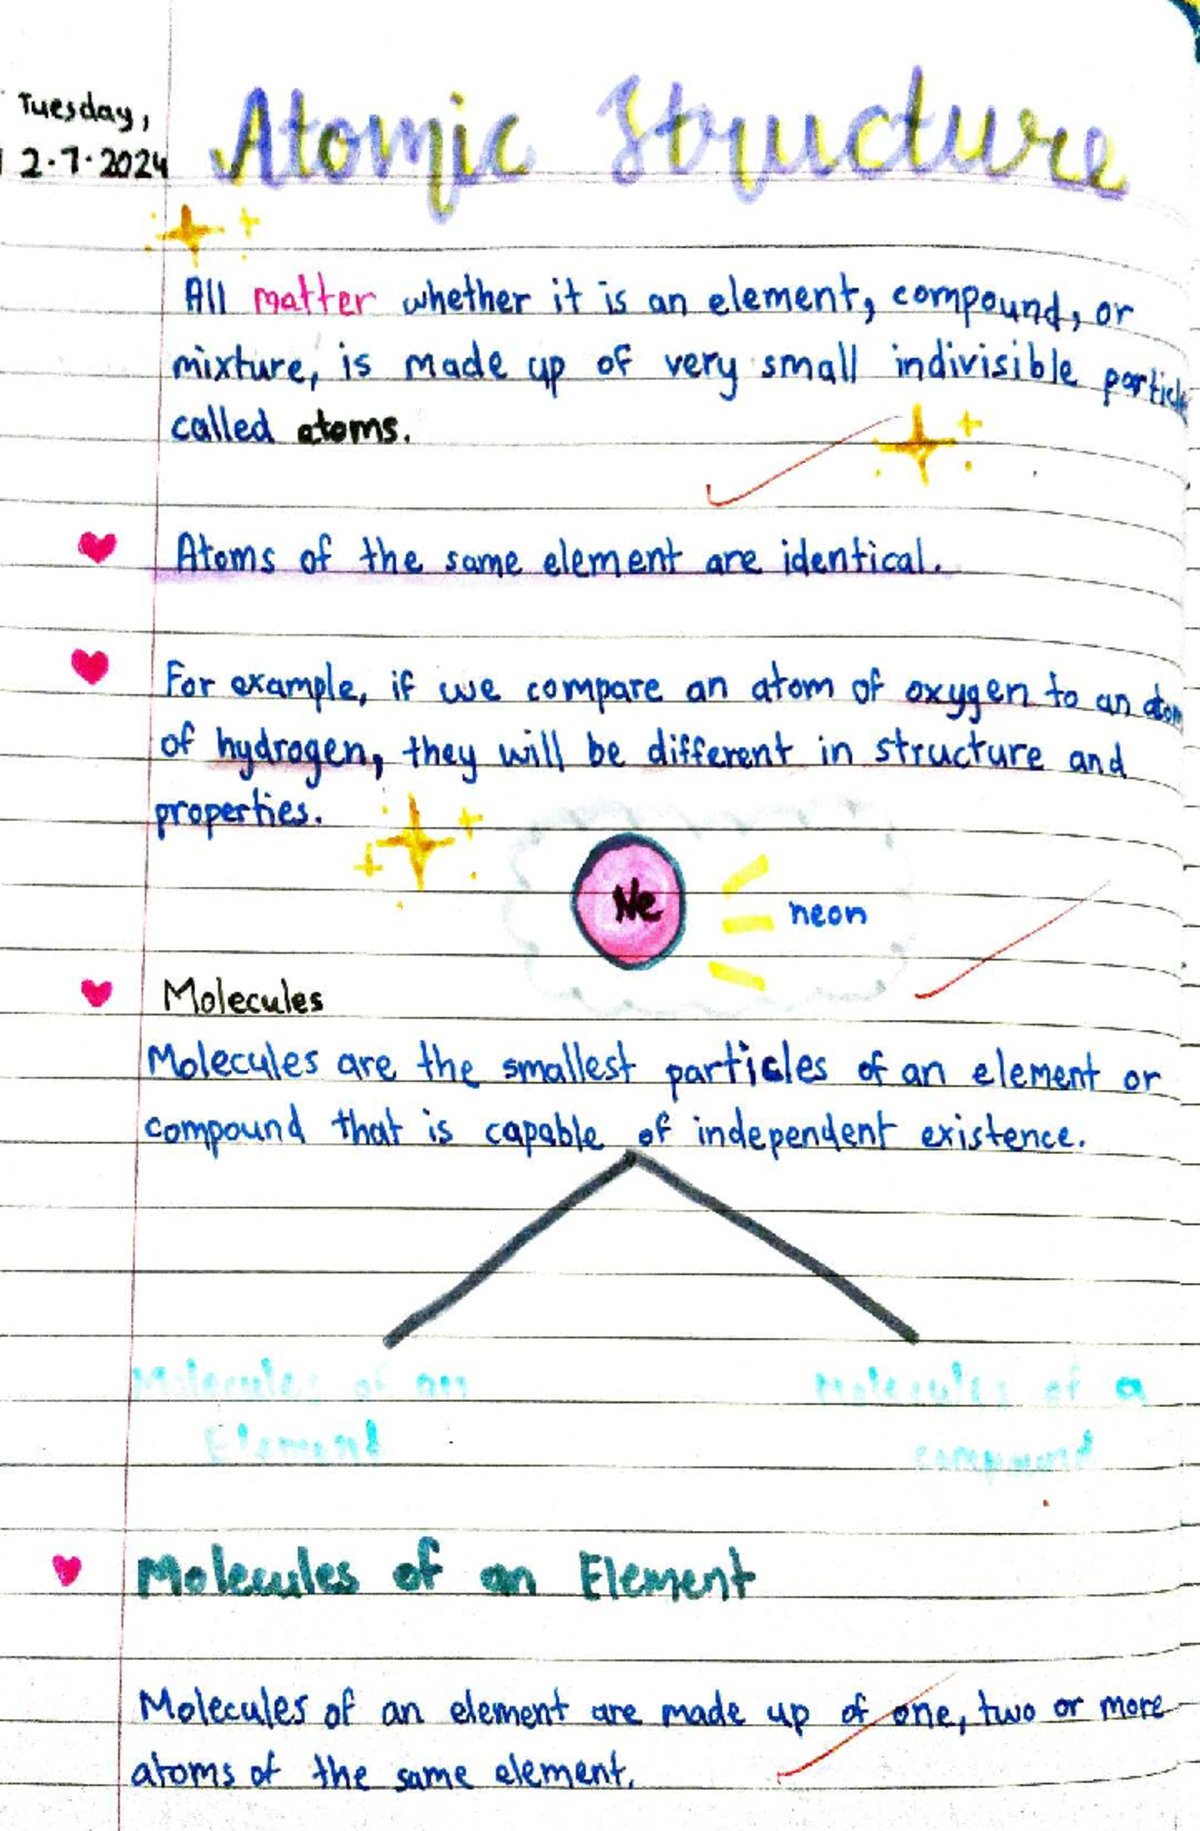 Tuesday,
2.7.2024
Atomic Structure
All matter whether it is an element, compound, or
mixture, is made up of very small indivisible particle
called atoms.
Atoms of the same element are identical.
For example, if we compare an atom of oxygen to an atom
of hydrogen, they will be different in structure and
properties.
Ne
neon
Molecules
Molecules are the smallest particles of an element or
compound that is capable of independent existence.
Molecules of an
Element
Molecules of a
compound
Molecules of an Element
Molecules of an element are made up of one, two or more
atoms of the same element.